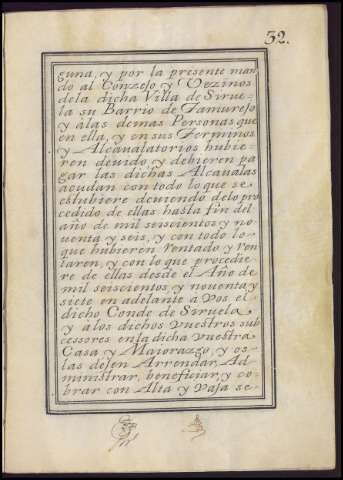 32.
guna, y por la presente man
do al Conzejo y Vezinos
dela dicha Villa de Sirue-
la su Barrio de Tamurejo
y alas demas Personas que
en ella, y en sus Terminos
y Alcaualatorios hubie-
ren deuido, y debieren pa
gar las dichas Alcaualas
acudan con todo lo que se
estubiere deuiendo delo pro
cedido, de ellas hasta fin del
año de mil seiscientos y no
uenta y seis, y con todo lo
que hubieren Rentado y Ren
taren, y con lo que procedie-
re de ellas desde el Año de
mil seiscientos, y nouenta, y
siete en adelante a Vos el
dicho Conde de Siruela,
y àlos dichos Vuestros sub
cessores enla dicha Vuestra
Casa y Maiorazgo, y os
las dejen Arrendar, Ad-
ministrar, beneficiar, y co-
brar con Alta y Vaja se-